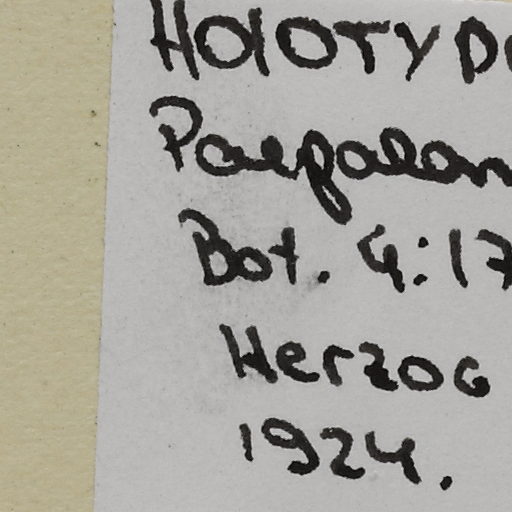 Holotype
Paepalan
Bot. 4:17
Herzog
1924.